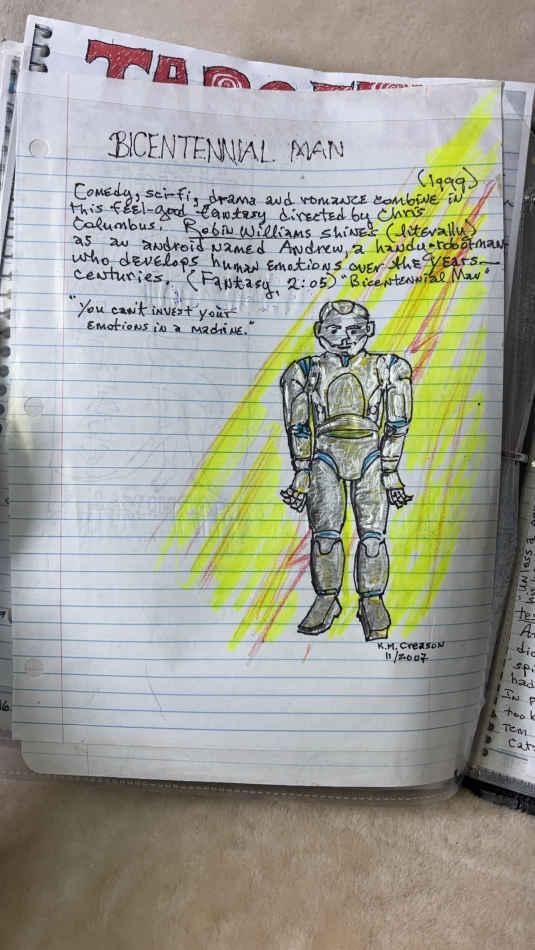 BICENTENNIAL MAN
(1999)
Comedy, sci-fi, drama and romance combine in
this feel-good fantasy directed by Chris
Columbus. Robin Williams shines (literally)
as an android named Andrew, a handy-robotman
who develops human emotions over the years—
centuries. (Fantasy, 2:05) "Bicentennial Man"
"You can't invest your
emotions in a machine."
K.M. Creason
11/2007
"Unless a
his
te
A
dic
spi
had
In p
took
Tem
Cat